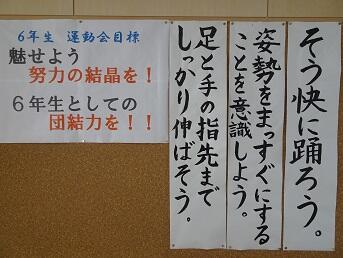 6年生 運動会目標
魅せよう
努力の結晶を！
6年生としての
団結力を！！
そう快に踊ろう。
姿勢をまっすぐにする
ことを意識しよう。
足と手の指先まで
しっかり伸ばそう。